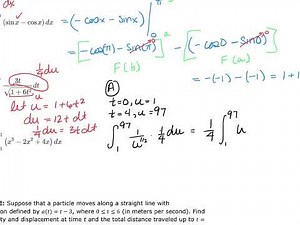 dx
(sin x − cos x) dx = (−cos x − sin x) |
= [−cos(π) − sin(π)] − [−cos 0 − sin 0]
F(b) F(a)
= −(−1) − (−1) = 1 +
1/4 du
3t dt
√(1+6t²)
u
let u = 1+6t²
du = 12t dt
1/4 du = 3t dt
A
t=0, u=1
t=4, u=97
∫₁⁹⁷ 1/u^(1/2) · 1/4 du = 1/4 ∫₁⁹⁷ u
(x³ − 2x² + 4x) dx
Suppose that a particle moves along a straight line with
on defined by a(t) = t − 3, where 0 ≤ t ≤ 6 (in meters per second). Find
ity and displacement at time t and the total distance traveled up to t =